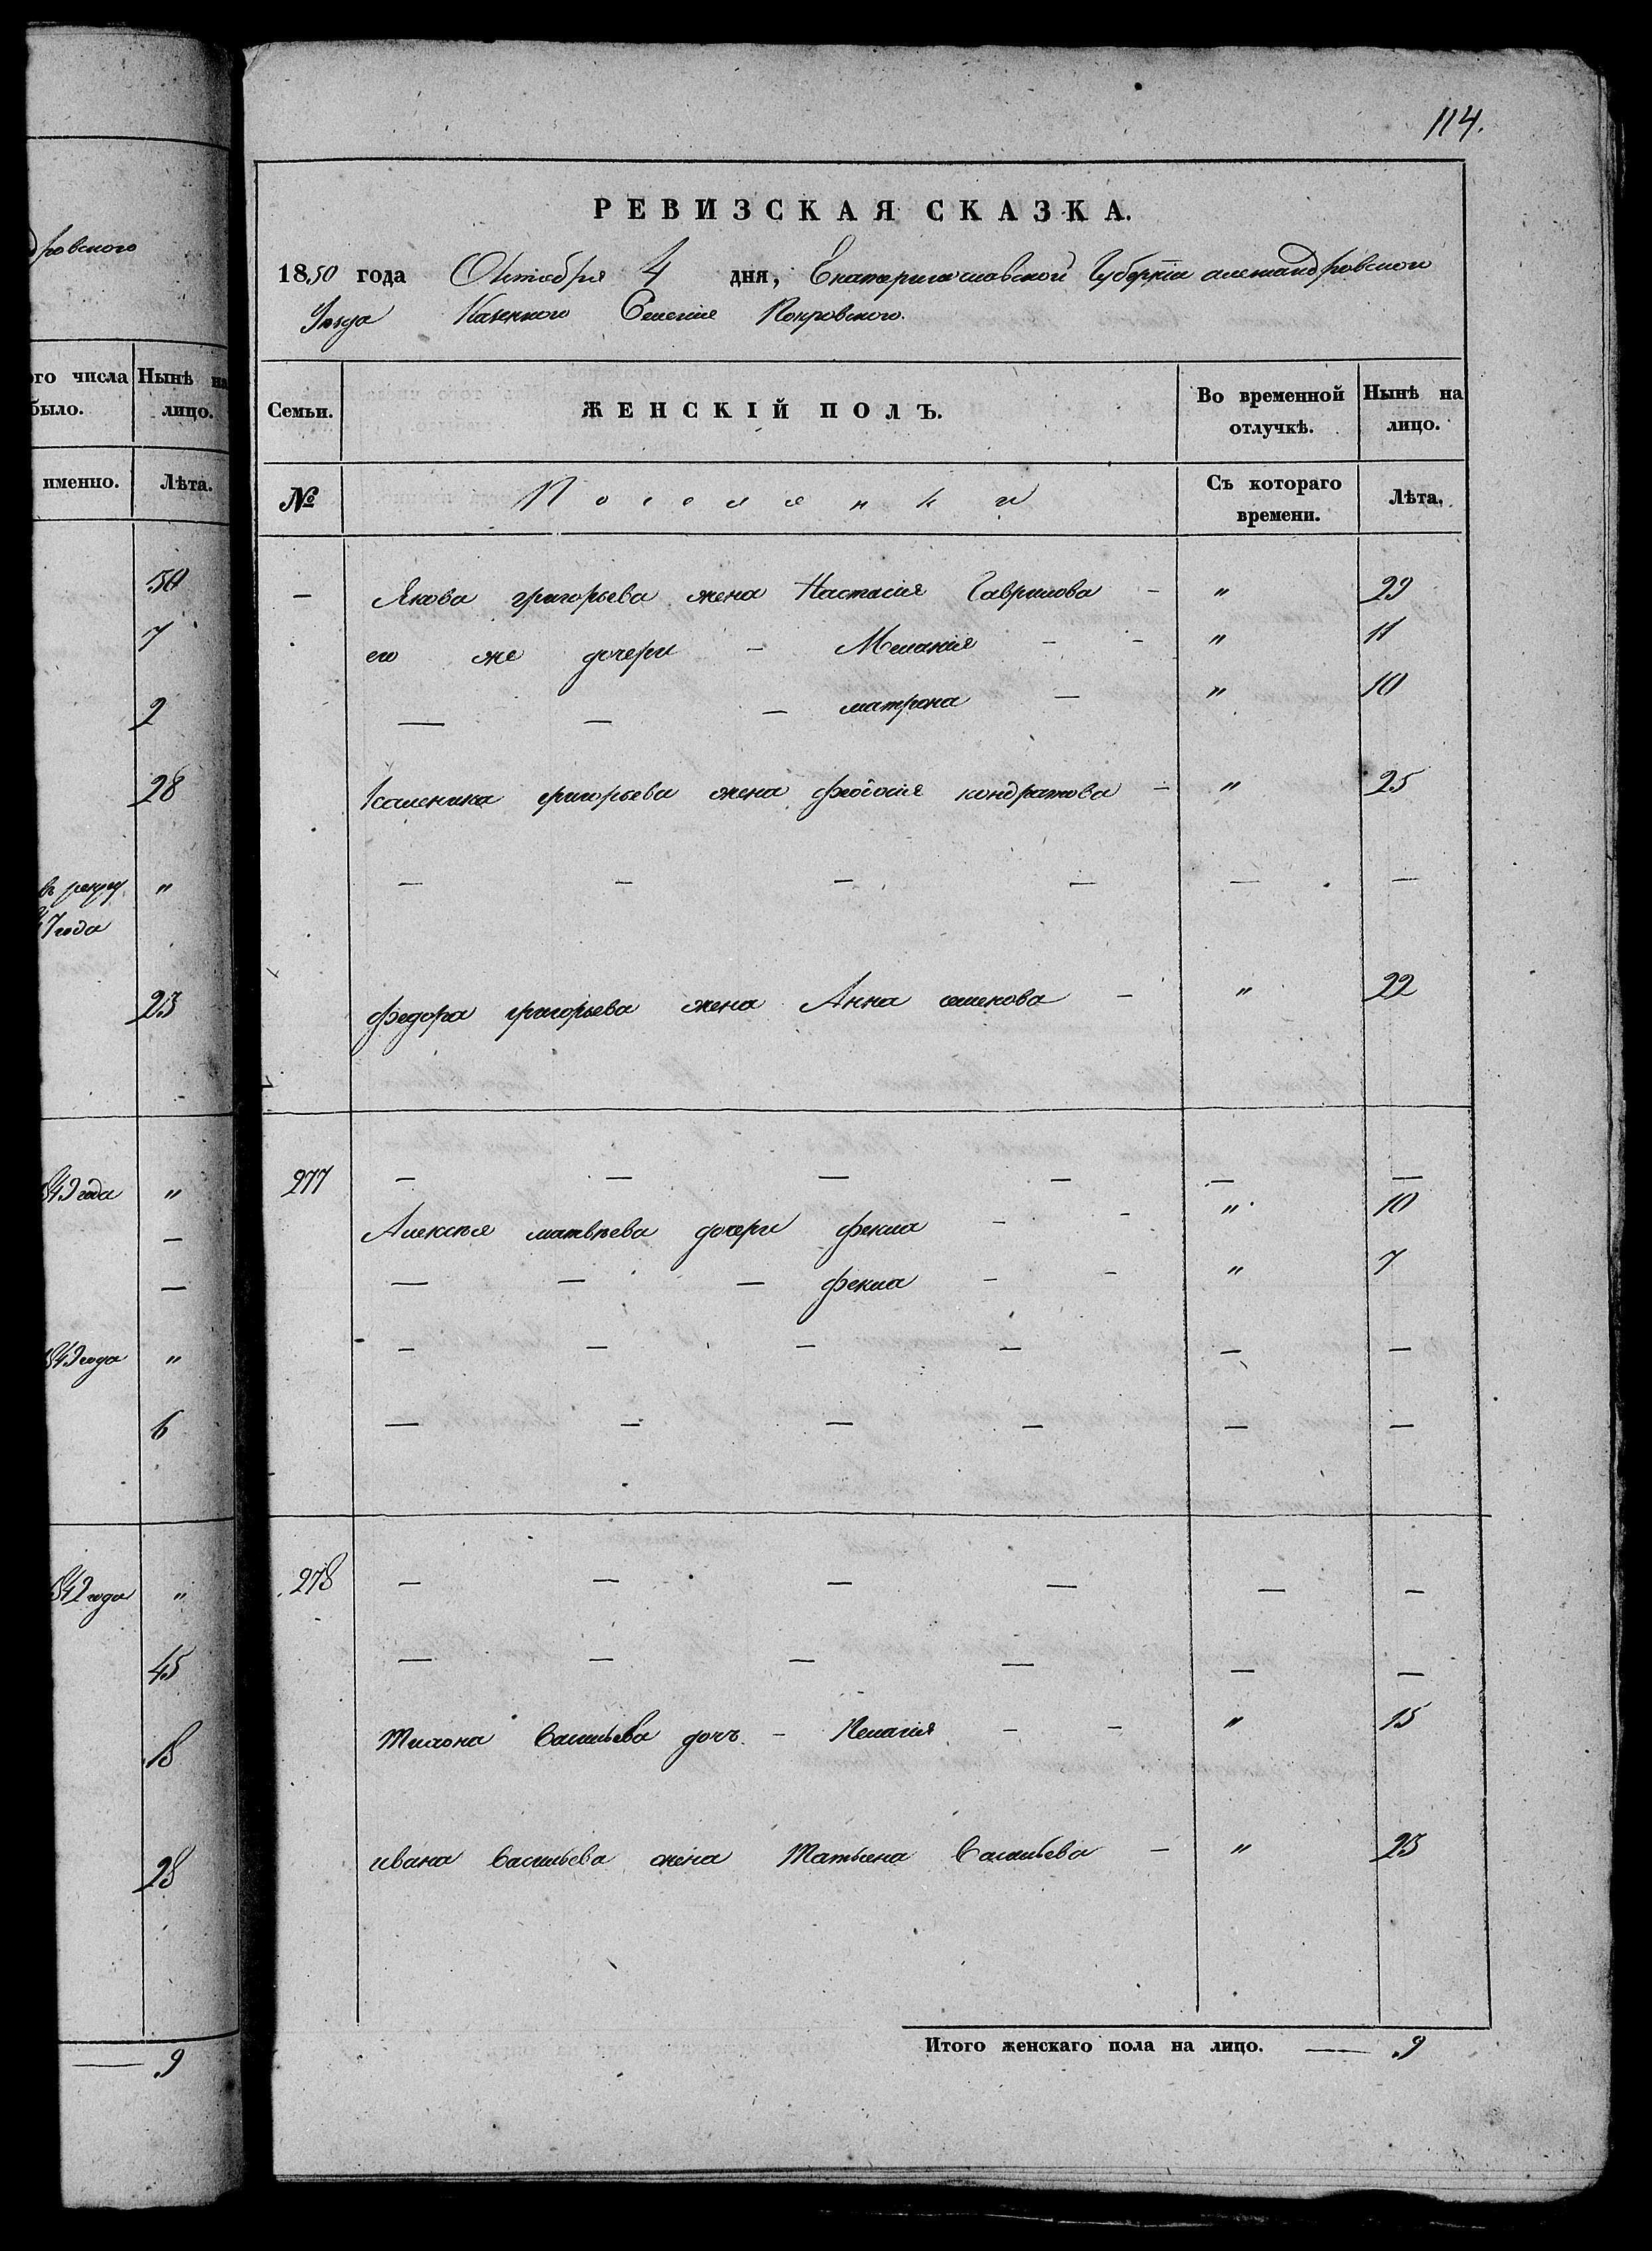 дровского
ого числа было.
Нынѣ на лицо.
именно.
Лѣта.
50
7
2
28
въ рекру "
47 года
23
849 года "
—
—
849 года "
6
842 года "
45
18
28
— 9
114.
РЕВИЗСКАЯ СКАЗКА.
1850 года Октября 4 дня, Екатеринославской Губерніи александровского
Уѣзда Казенного Селенія Покровского.
Семьи.
ЖЕНСКІЙ ПОЛЪ.
Во временной отлучкѣ.
Нынѣ на лицо.
№
Поселянки
Съ котораго времени.
Лѣта.
— Якова григорьева жена Настасія Гаврилова — " 29
его же дочери — Меланія — — " 11
— — — матрона — " 10
Каленика григорьева жена феодосія кондратова — " 25
— — — — — —
федора григорьева жена Анна семенова — " 22
277 — — — — — —
Алексѣя матвѣева дочери фекла — — " 10
— — — фекла — — " 7
— — — — — —
— — — — — —
278 — — — — — —
— — — — — —
Тихона Васильева дочь — Пелагія — — " 15
ивана Васильева жена Татьяна Васильева — " 23
Итого женскаго пола на лицо. — 9